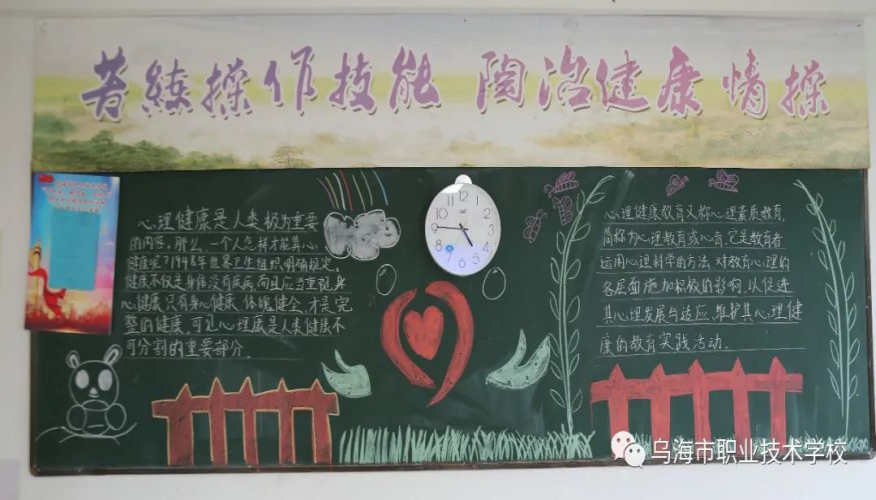 苦練操作技能 陶冶健康情操
心理健康是人类极为重要
的内容,那么,一个人怎样才能算心
健康呢?1948年世界卫生组织明确规定,
健康不仅是身体没有疾病,而且应当重视身
心健康,只有身心健康、体魄健全,才是完
整的健康,可见心理康是人类健康不
可分割的重要部分。
心理健康教育又称心理素质教育,
简称为心理教育或心育,它是教育者
运用心理科学的方法,对教育心理的
各层面施加积极的影响,以促进
其心理发展与适应、维护其心理健
康的教育实践活动。
乌海市职业技术学校